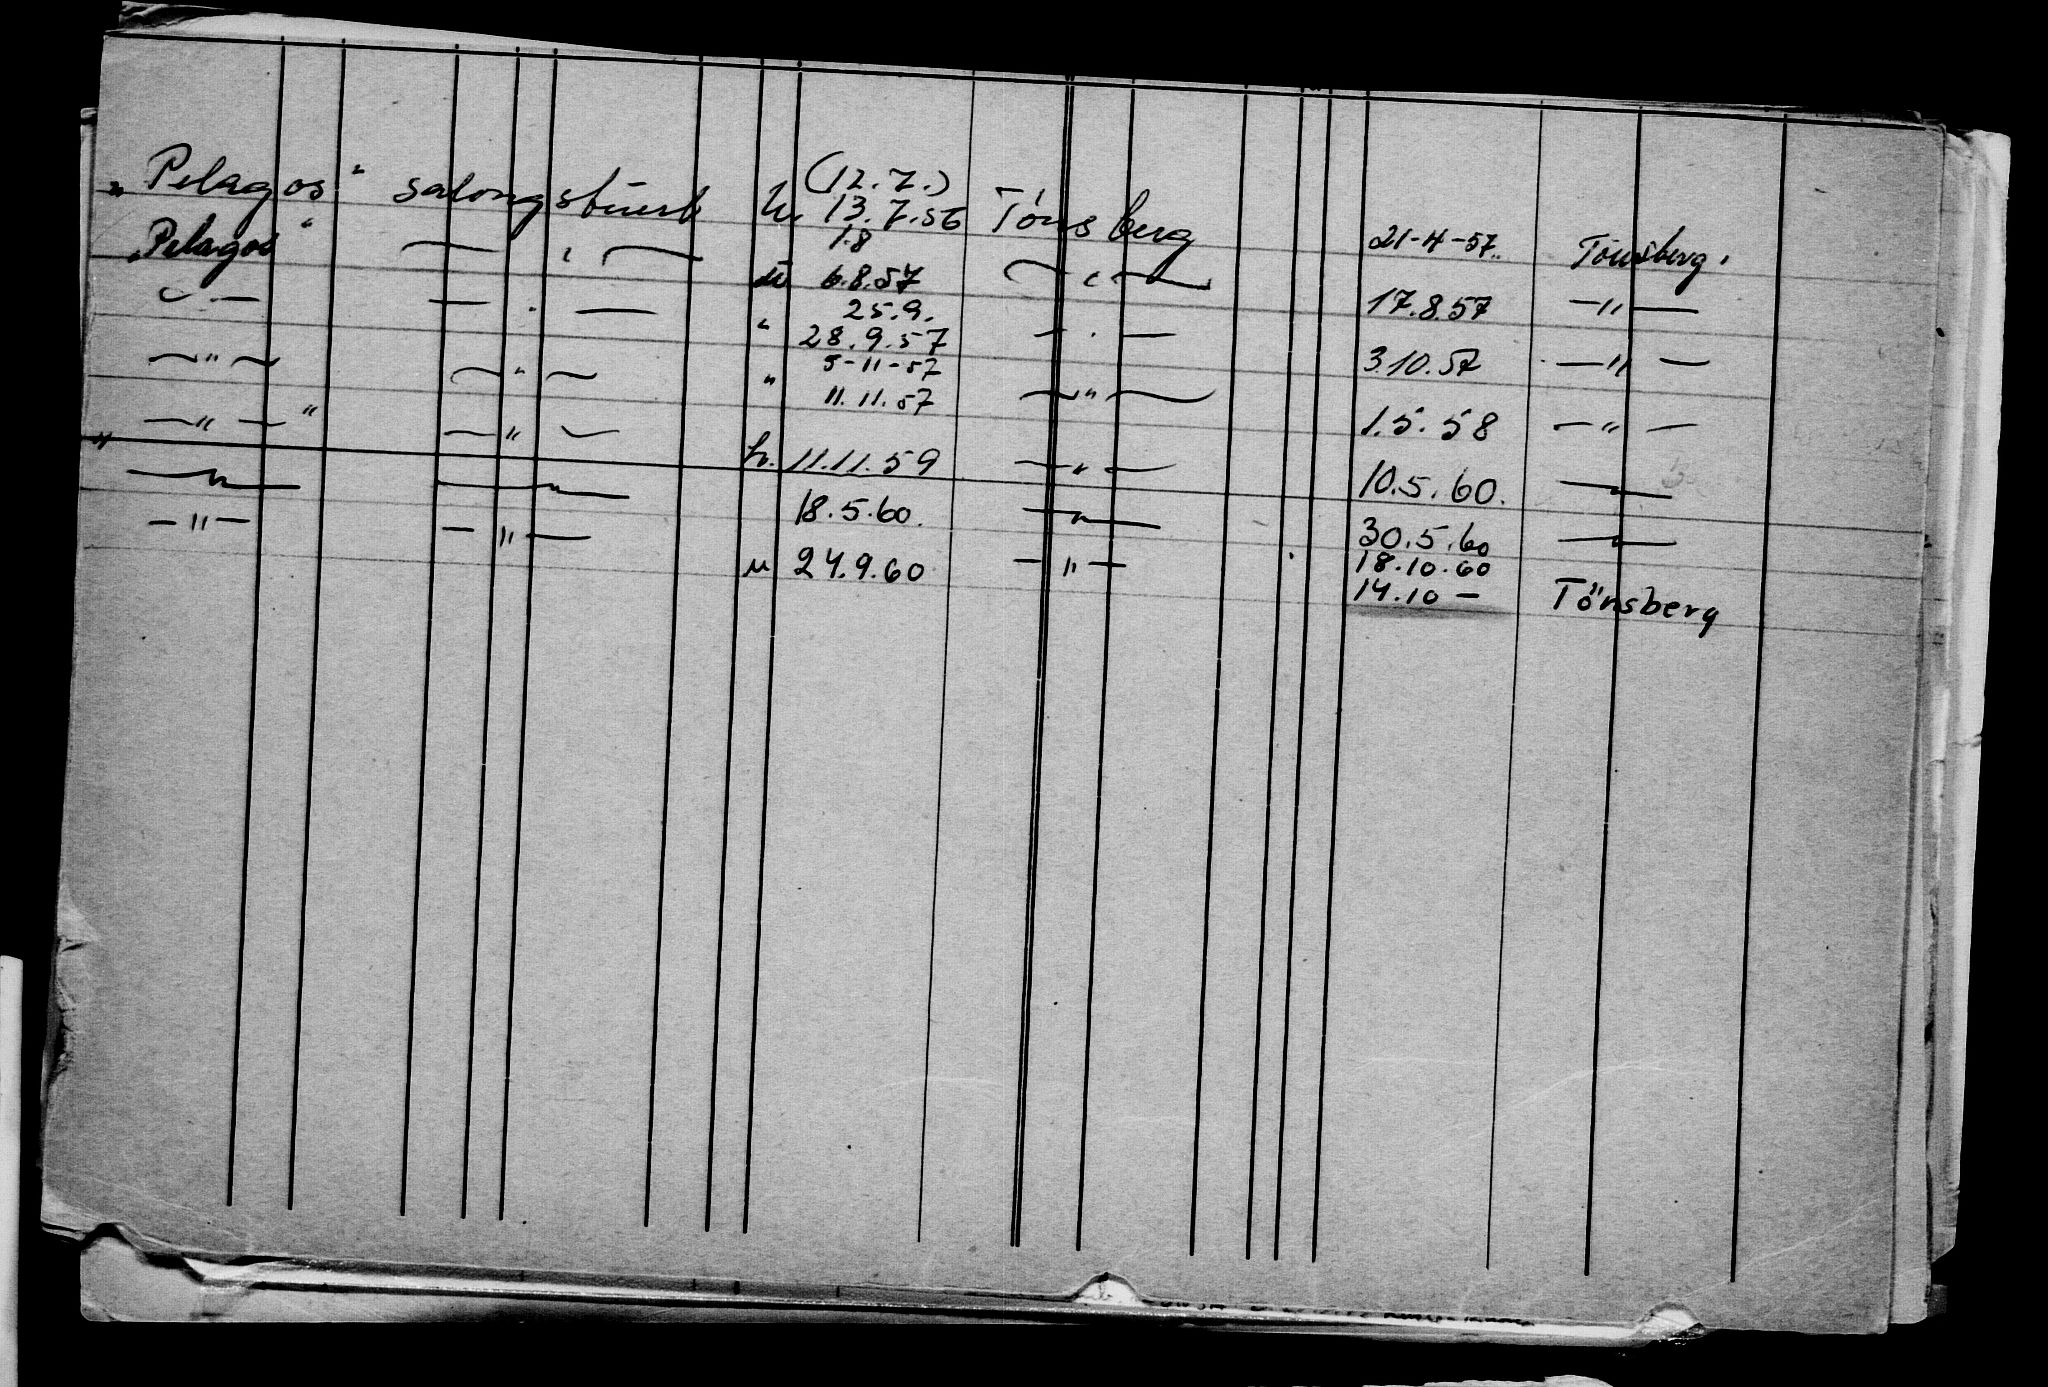 „Pelagos“ salongstuert h. (12.7.) 13.7.56 Tönsberg 21-4-57. Tönsberg.
„Pelagos“ — " — u 1.8 6.8.57 — " — 17.8.57 — " —
— " — — " — " 25.9. 28.9.57 — " — 3.10.57 — " —
— " — — " — " 5-11-57 11.11.57 — " — 1.5.58 — " —
— " — " — " — h. 11.11.59 — " — 10.5.60. — " —
— " — — " — 18.5.60. — " — 30.5.60 — " —
— " — — " — u 24.9.60 — " — 18.10.60
14.10 — Tönsberg